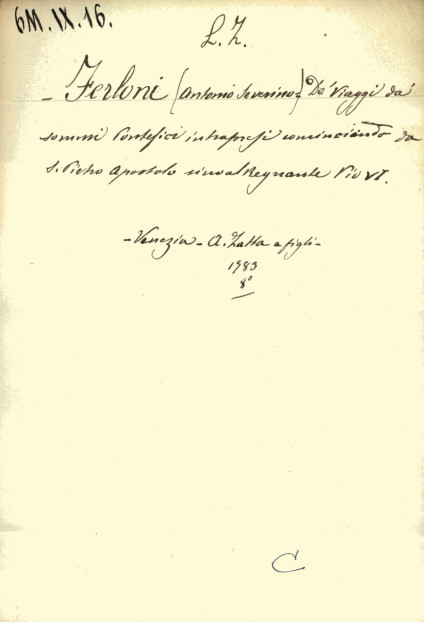 6M.IX.16.
L.Z.
- Ferloni (Antonio Severino = De' Viaggi da'
sommi Pontefici intrapresi cominciando da
S. Pietro Apostolo sino al Regnante Pio VI.
- Venezia - A. Zatta e figli -
1783
8°
C